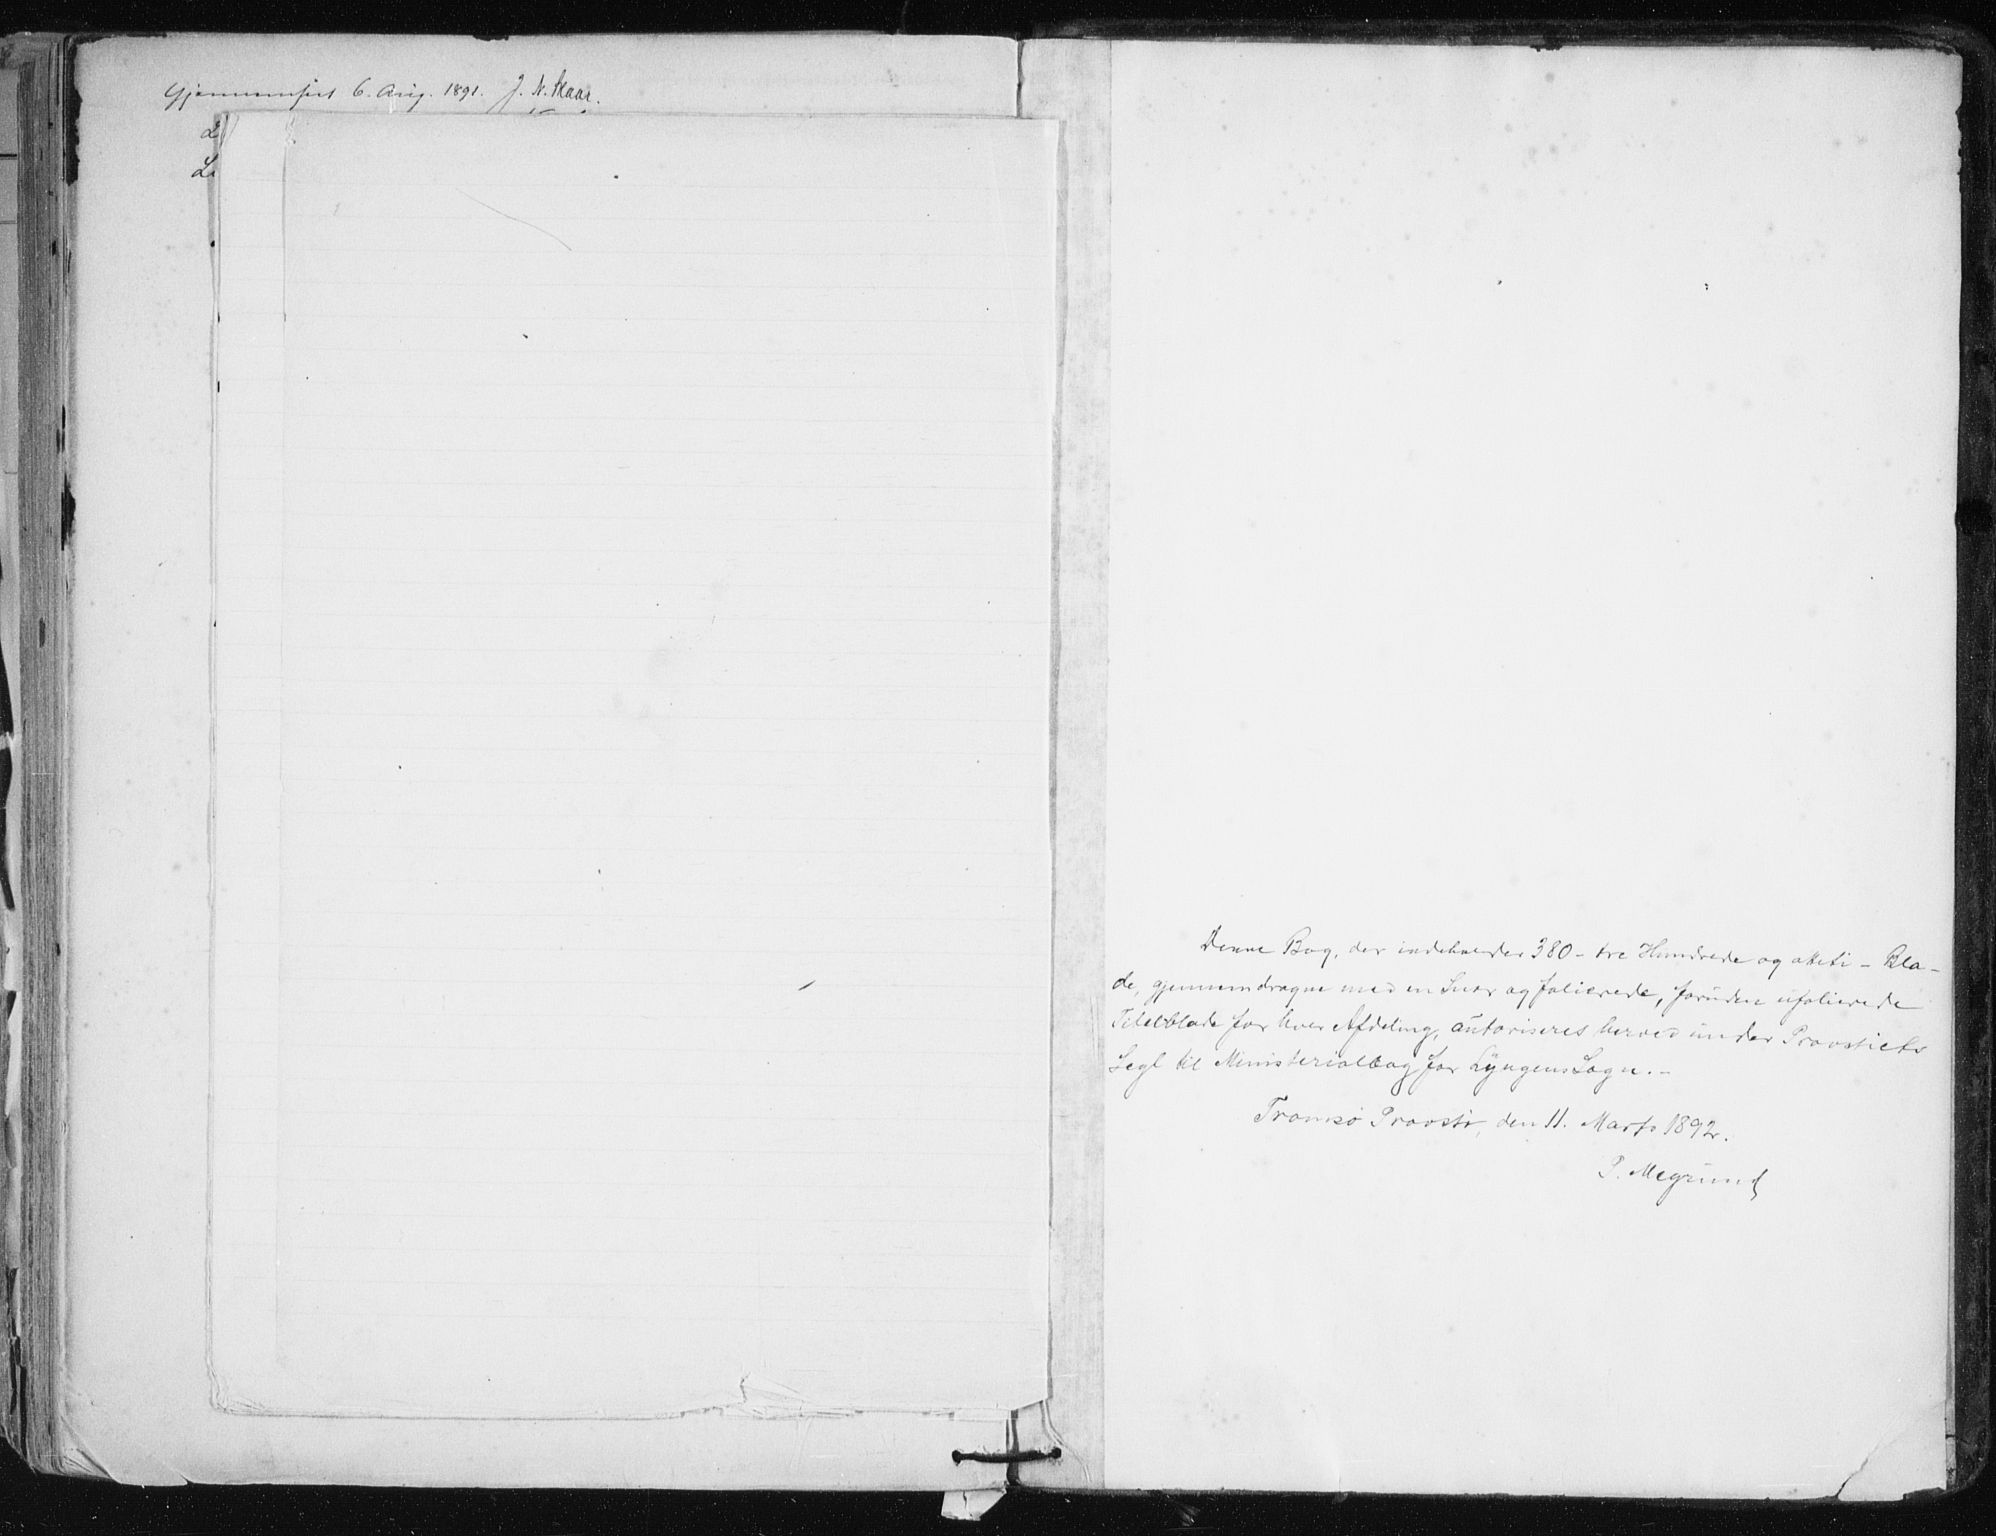 Gjennemseet 6. Aug. 1891. J. N. Skaar.
Denne Bog, der indeholder 380 - tre Hundrede og otteti - Bla-
de, gjennemdragne med en Snor og folierede, foruden ufolierede
Titelblade for hver Afdeling, autoriseres herved under Provstiets
Segl til Ministerialbog for Lyngens Sogn. -
Tromsø Provsti, den 11. Marts 1892.